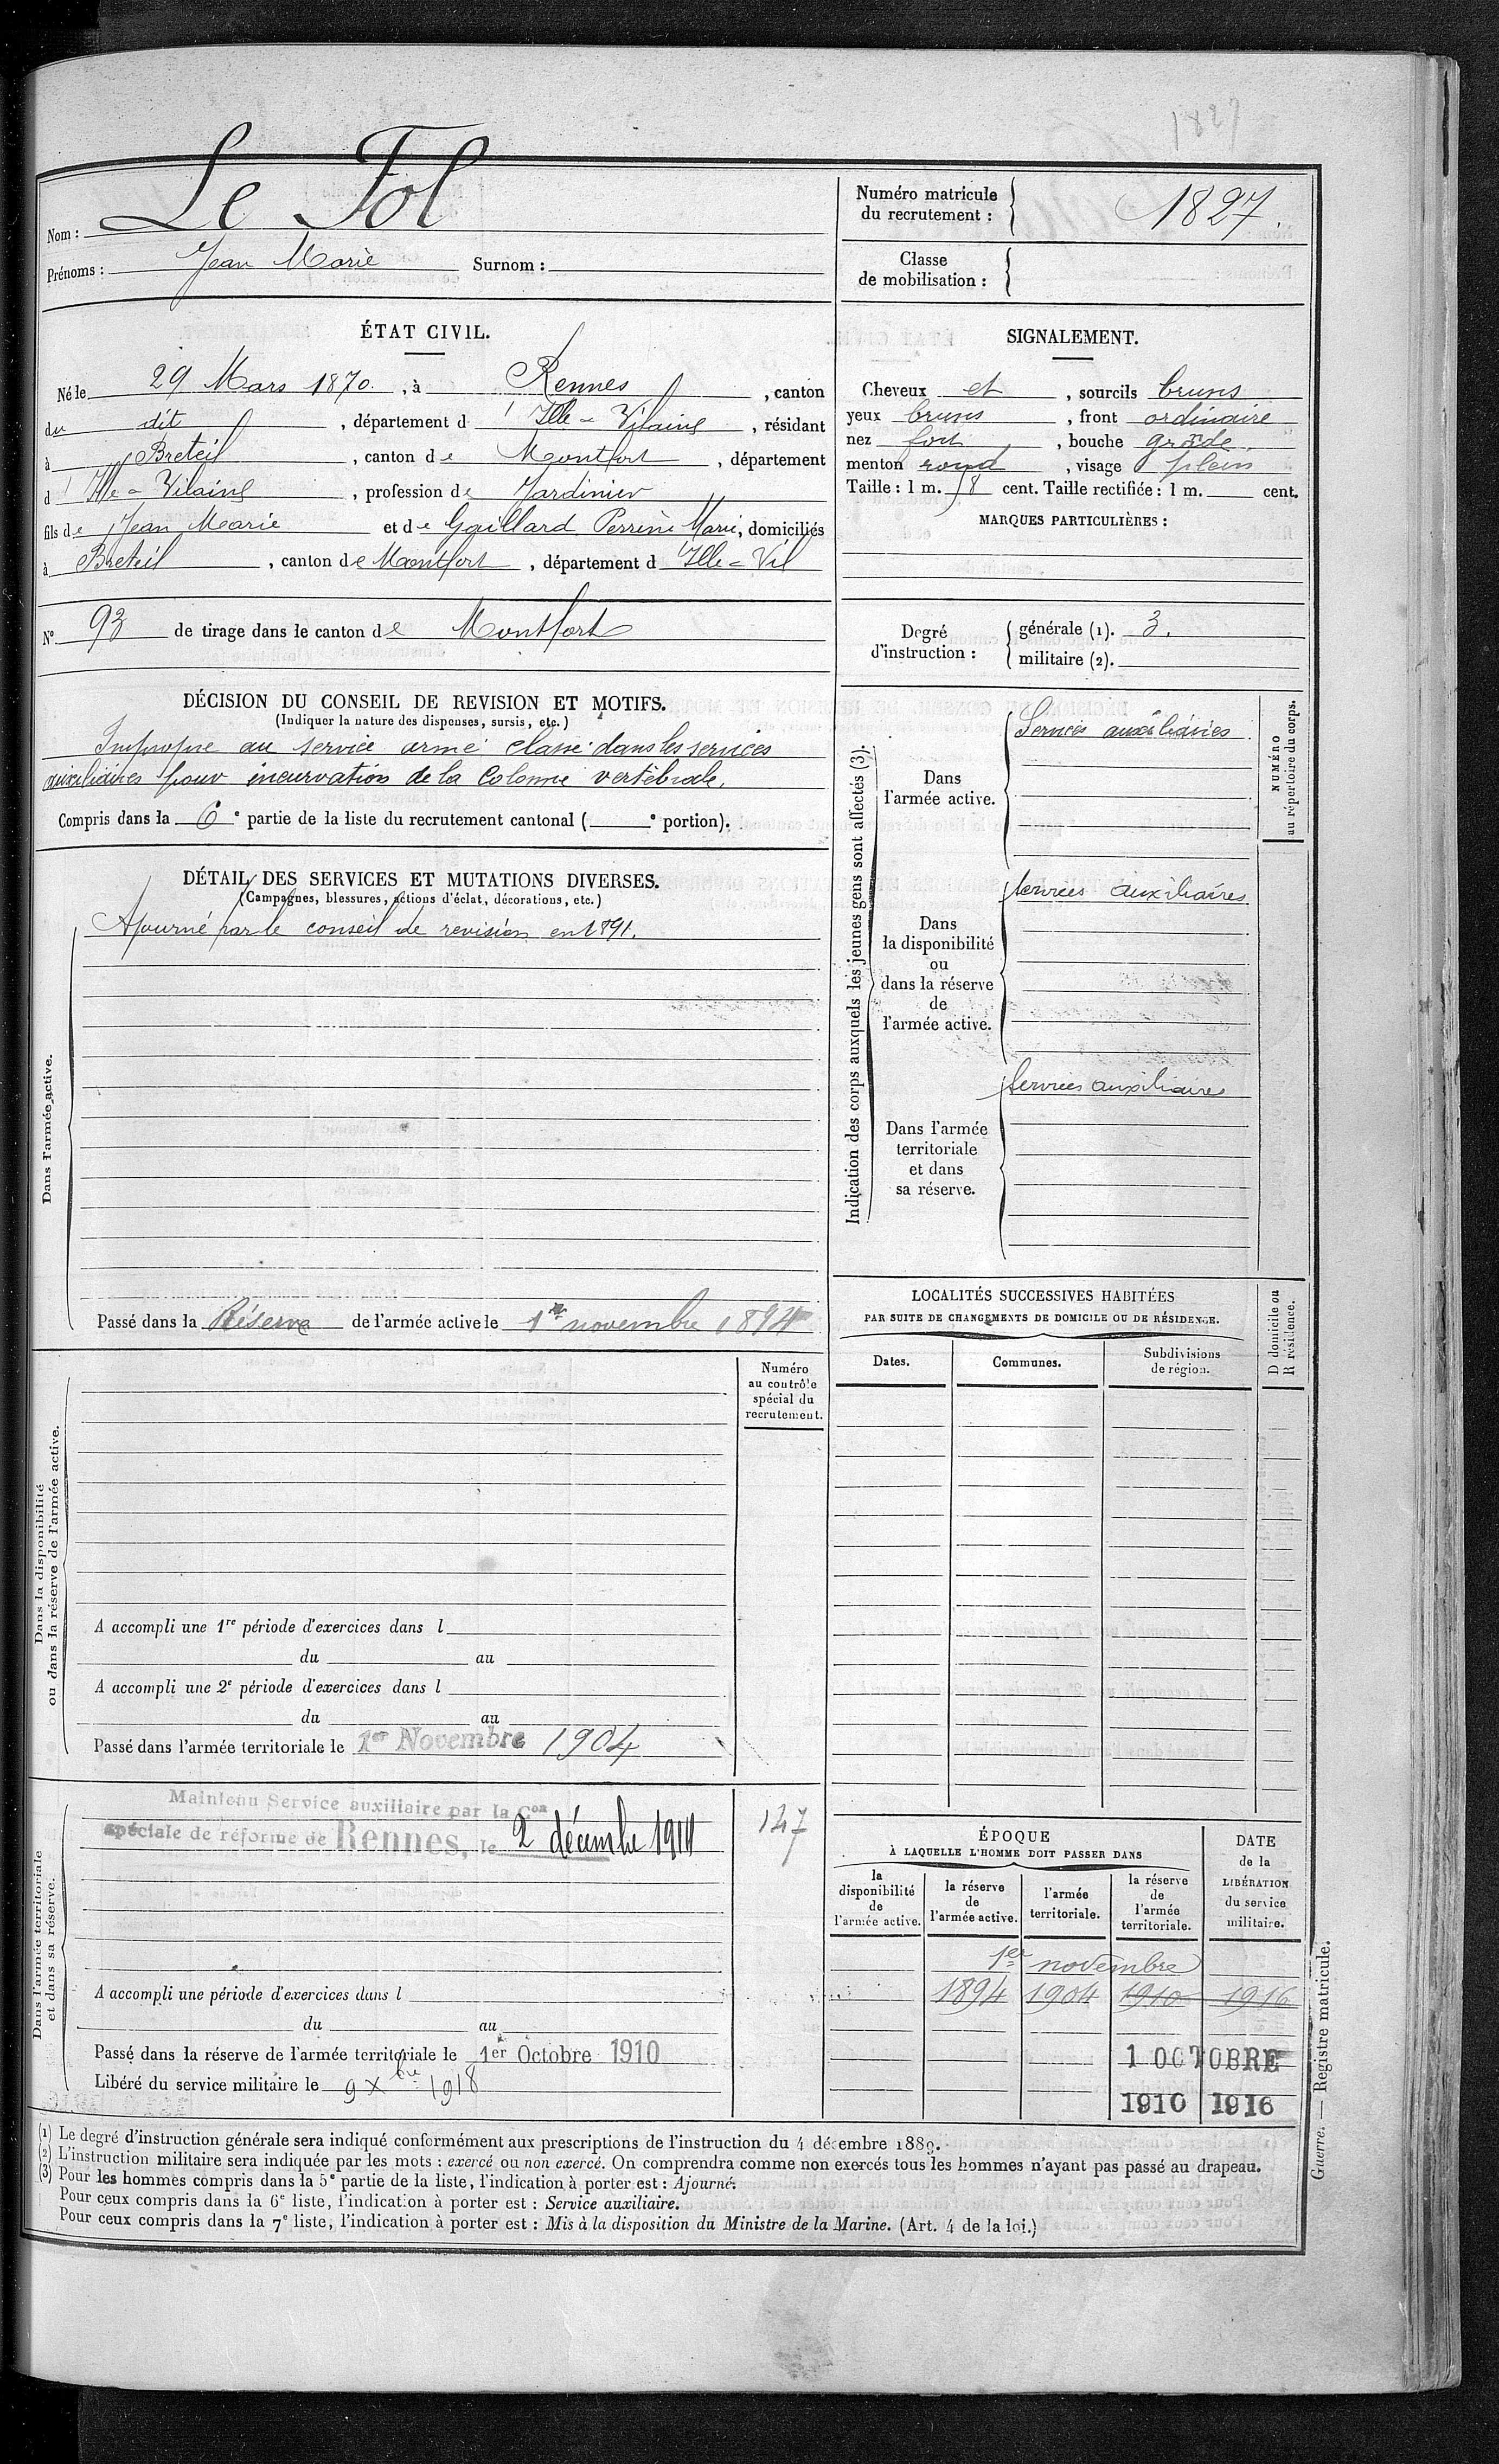 1827
Nom : Le Fol
Prénoms : Jean Marie Surnom :
Numéro matricule du recrutement : 1827.
Classe de mobilisation :
ÉTAT CIVIL.
Né le 29 Mars 1870, à Rennes, canton
du dit, département d l'Ille-Vilaine, résidant
à Breteil, canton de Montfort, département
d l'Ille-Vilaine, profession de Jardinier
fils de Jean Marie et de Gaillard Perrine Marie, domiciliés
à Breteil, canton de Montfort, département d Ille-Vil
N° 93 de tirage dans le canton de Montfort
SIGNALEMENT.
Cheveux et, sourcils bruns
yeux bruns, front ordinaire
nez fort, bouche grande
menton rond, visage plein
Taille : 1 m. 58 cent. Taille rectifiée : 1 m. cent.
MARQUES PARTICULIÈRES :
Degré d'instruction :
générale (1). 3.
militaire (2).
DÉCISION DU CONSEIL DE REVISION ET MOTIFS.
(Indiquer la nature des dispenses, sursis, etc.)
Impropre au service armé classé dans les services
auxiliaires pour incurvation de la Colonne vertébrale.
Compris dans la 6e partie de la liste du recrutement cantonal ( e portion).
DÉTAIL DES SERVICES ET MUTATIONS DIVERSES.
(Campagnes, blessures, actions d'éclat, décorations, etc.)
Dans l'armée active.
Ajourné par le conseil de revision en 1891.
Passé dans la Réserve de l'armée active le 1er novembre 1894
Indication des corps auxquels les jeunes gens sont affectés (3).
NUMÉRO au répertoire du corps.
Dans
l'armée active.
Services auxiliaires
Dans
la disponibilité
ou
dans la réserve
de
l'armée active.
Services auxiliaires
Dans l'armée
territoriale
et dans
sa réserve.
Services auxiliaires
Dans la disponibilité
ou dans la réserve de l'armée active.
Numéro
au contrôle
spécial du
recrutement.
A accompli une 1re période d'exercices dans l
du au
A accompli une 2e période d'exercices dans l
du au
Passé dans l'armée territoriale le 1er Novembre 1904
LOCALITÉS SUCCESSIVES HABITÉES
PAR SUITE DE CHANGEMENTS DE DOMICILE OU DE RÉSIDENCE.
Dates. Communes. Subdivisions de région.
D domicile ou
R résidence.
Dans l'armée territoriale
et dans sa réserve.
Maintenu Service auxiliaire par la Con
spéciale de réforme de Rennes, le 2 décembre 1914
147
A accompli une période d'exercices dans l
du au
Passé dans la réserve de l'armée territoriale le 1er Octobre 1910
Libéré du service militaire le 9 Xbre 1918
ÉPOQUE
À LAQUELLE L'HOMME DOIT PASSER DANS
la
disponibilité
de
l'armée active.
la réserve
de
l'armée active.
l'armée
territoriale.
la réserve
de
l'armée
territoriale.
DATE
de la
LIBÉRATION
du service
militaire.
1er novembre
1894 1904 1910 1916
1 OCTOBRE
1910 1916
(1) Le degré d'instruction générale sera indiqué conformément aux prescriptions de l'instruction du 4 décembre 1889.
(2) L'instruction militaire sera indiquée par les mots : exercé ou non exercé. On comprendra comme non exercés tous les hommes n'ayant pas passé au drapeau.
(3) Pour les hommes compris dans la 5e partie de la liste, l'indication à porter est : Ajourné.
Pour ceux compris dans la 6e liste, l'indication à porter est : Service auxiliaire.
Pour ceux compris dans la 7e liste, l'indication à porter est : Mis à la disposition du Ministre de la Marine. (Art. 4 de la loi.)
Guerre. — Registre matricule.